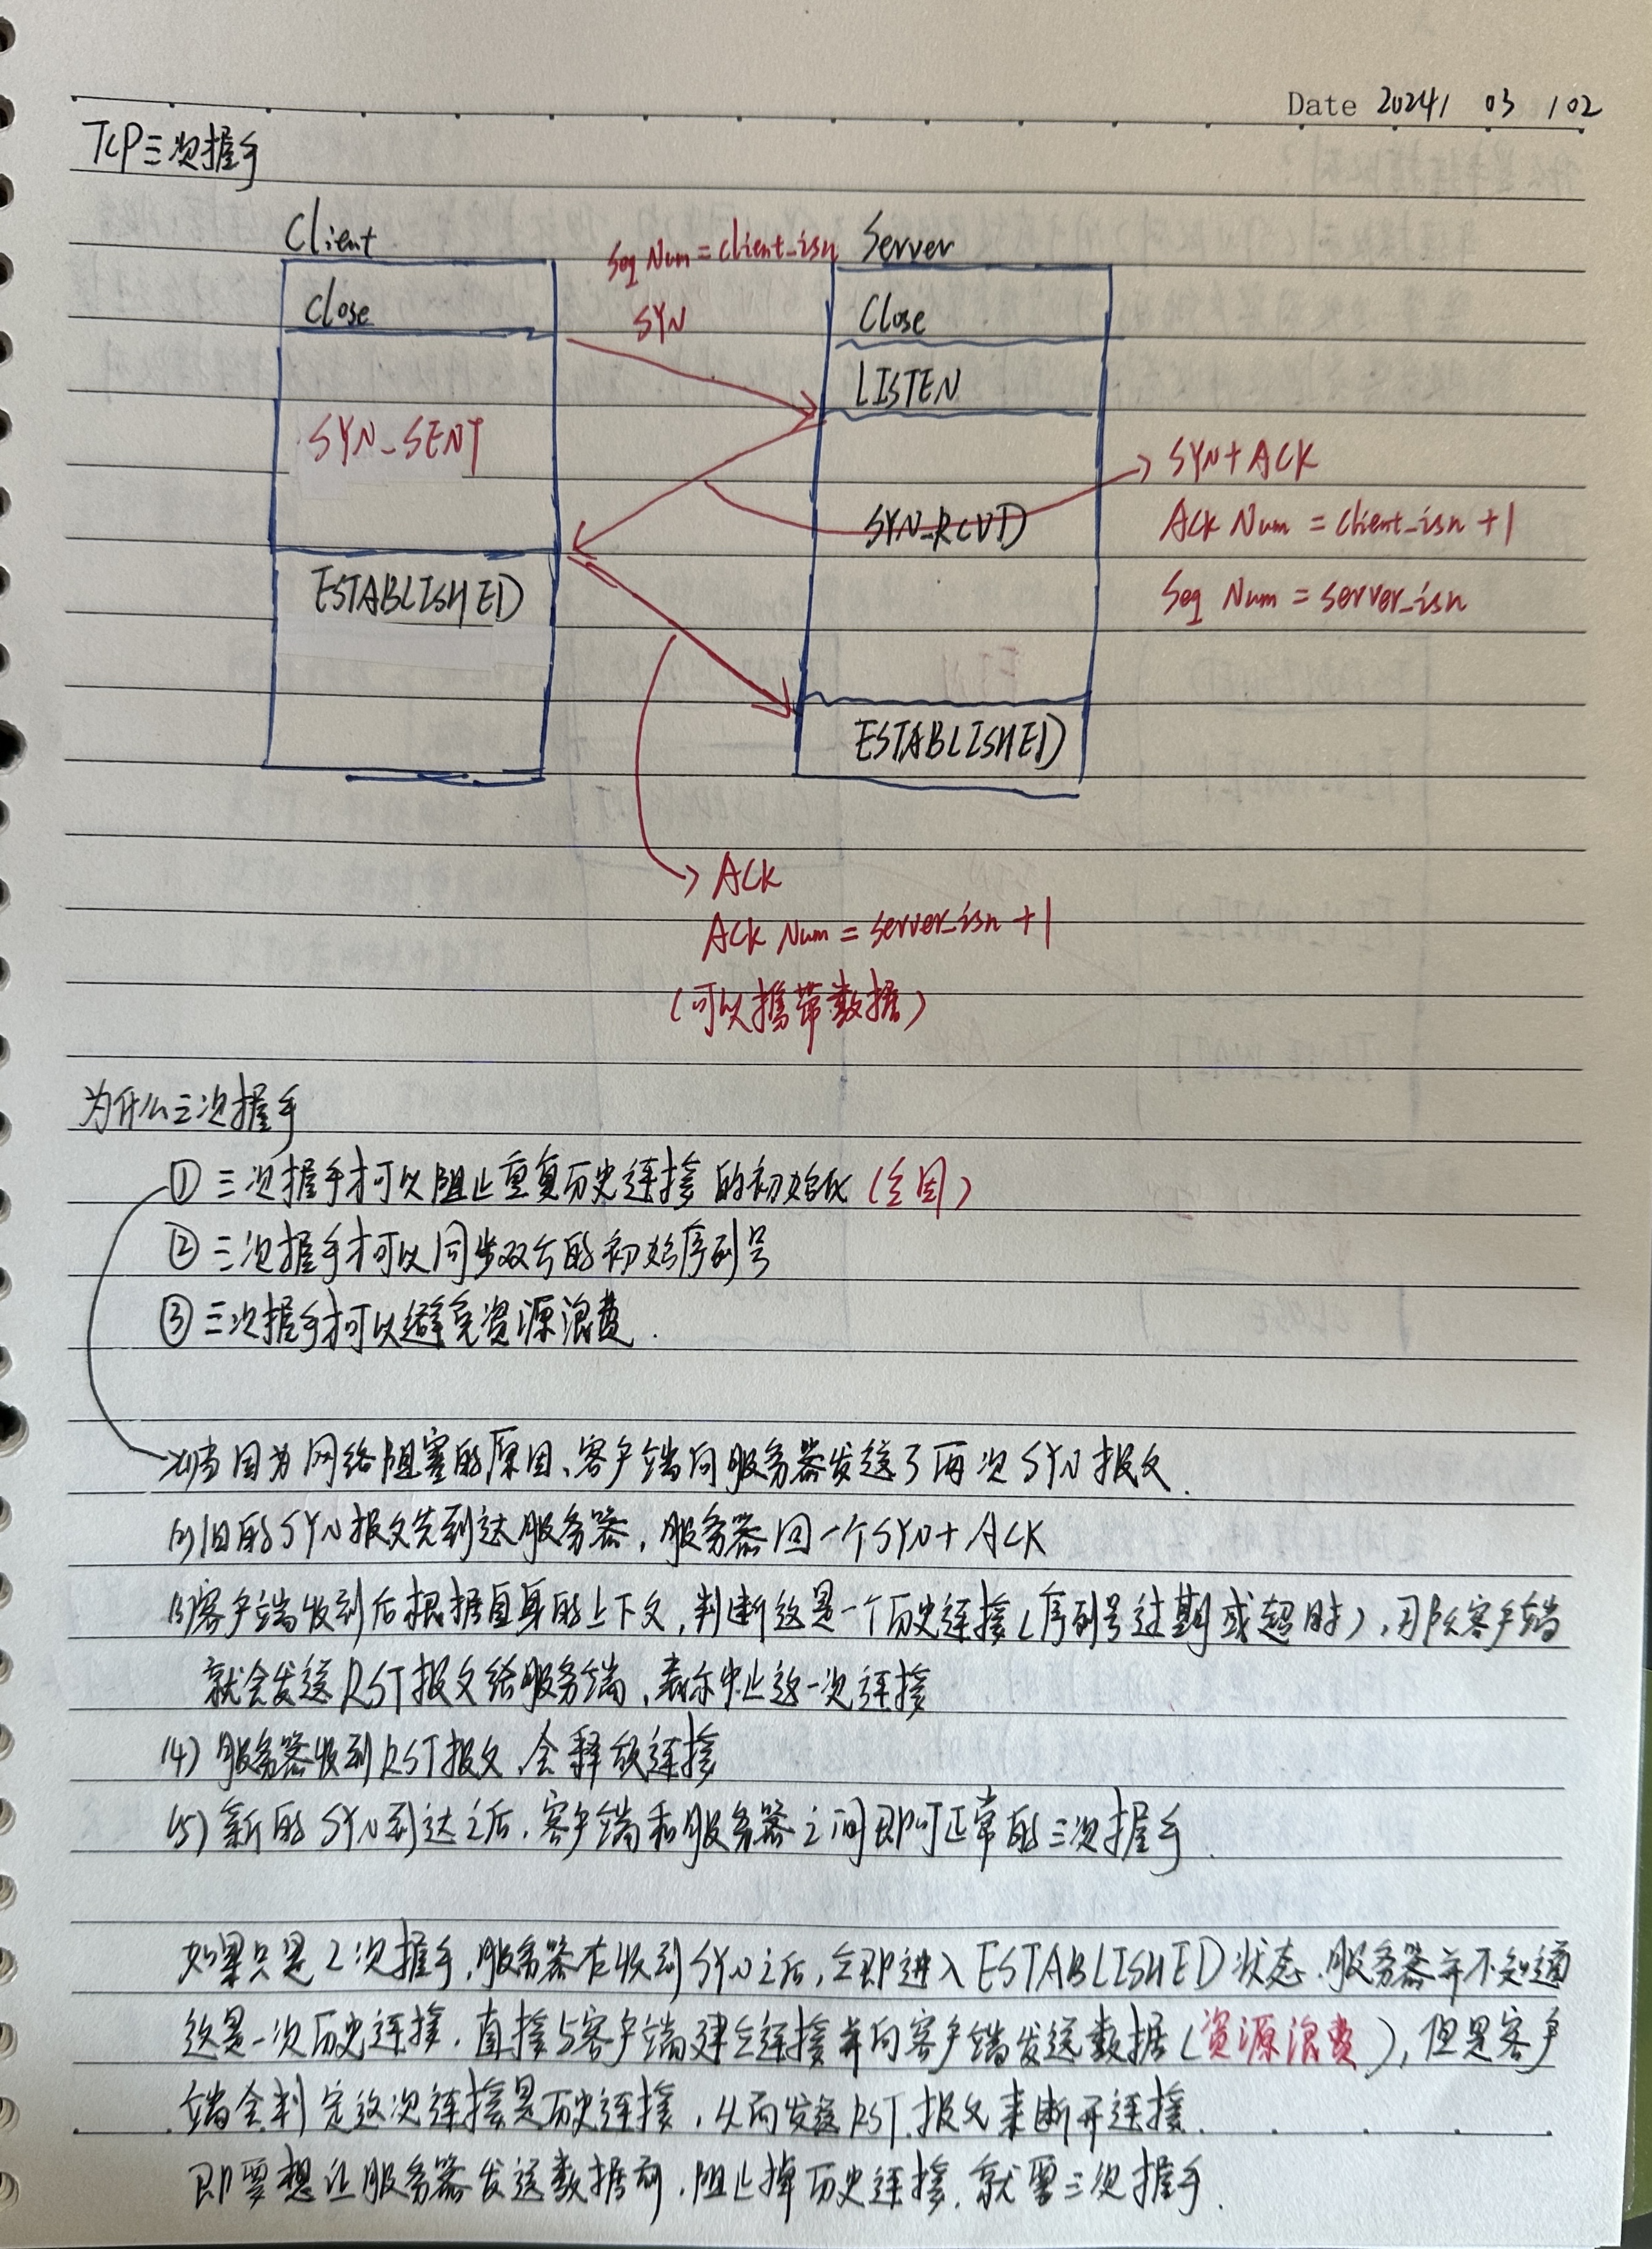 Date 2024/ 03 / 02
TCP三次握手
Client
Seq Num = client_isn
Server
Close
SYN
Close
LISTEN
SYN_SENT
SYN + ACK
SYN_RCVD
Ack Num = client_isn + 1
ESTABLISHED
Seq Num = server_isn
ESTABLISHED
ACK
Ack Num = server_isn + 1
(可以携带数据)
为什么三次握手
① 三次握手才可以阻止重复历史连接的初始化 (主因)
② 三次握手才可以同步双方的初始序列号
③ 三次握手才可以避免资源浪费.
(1)当因为网络阻塞的原因、客户端向服务器发送了两次SYN报文.
(2)旧的SYN报文先到达服务器,服务器回一个SYN+ACK
(3)客户端收到后根据自身的上下文,判断这是一个历史连接(序列号过期或超时),那么客户端
就会发送RST报文给服务端、表示中止这一次连接
(4) 服务器收到RST报文,会释放连接
(5) 新的SYN到达之后,客户端和服务器之间即可正常的三次握手.
如果只是2次握手,服务器在收到SYN之后,立即进入ESTABLISHED状态.服务器并不知道
这是一次历史连接.直接与客户端建立连接并向客户端发送数据(资源浪费),但是客户
端会判定这次连接是历史连接,从而发送RST报文来断开连接.
即要想让服务器发送数据前,阻止掉历史连接,就需三次握手.